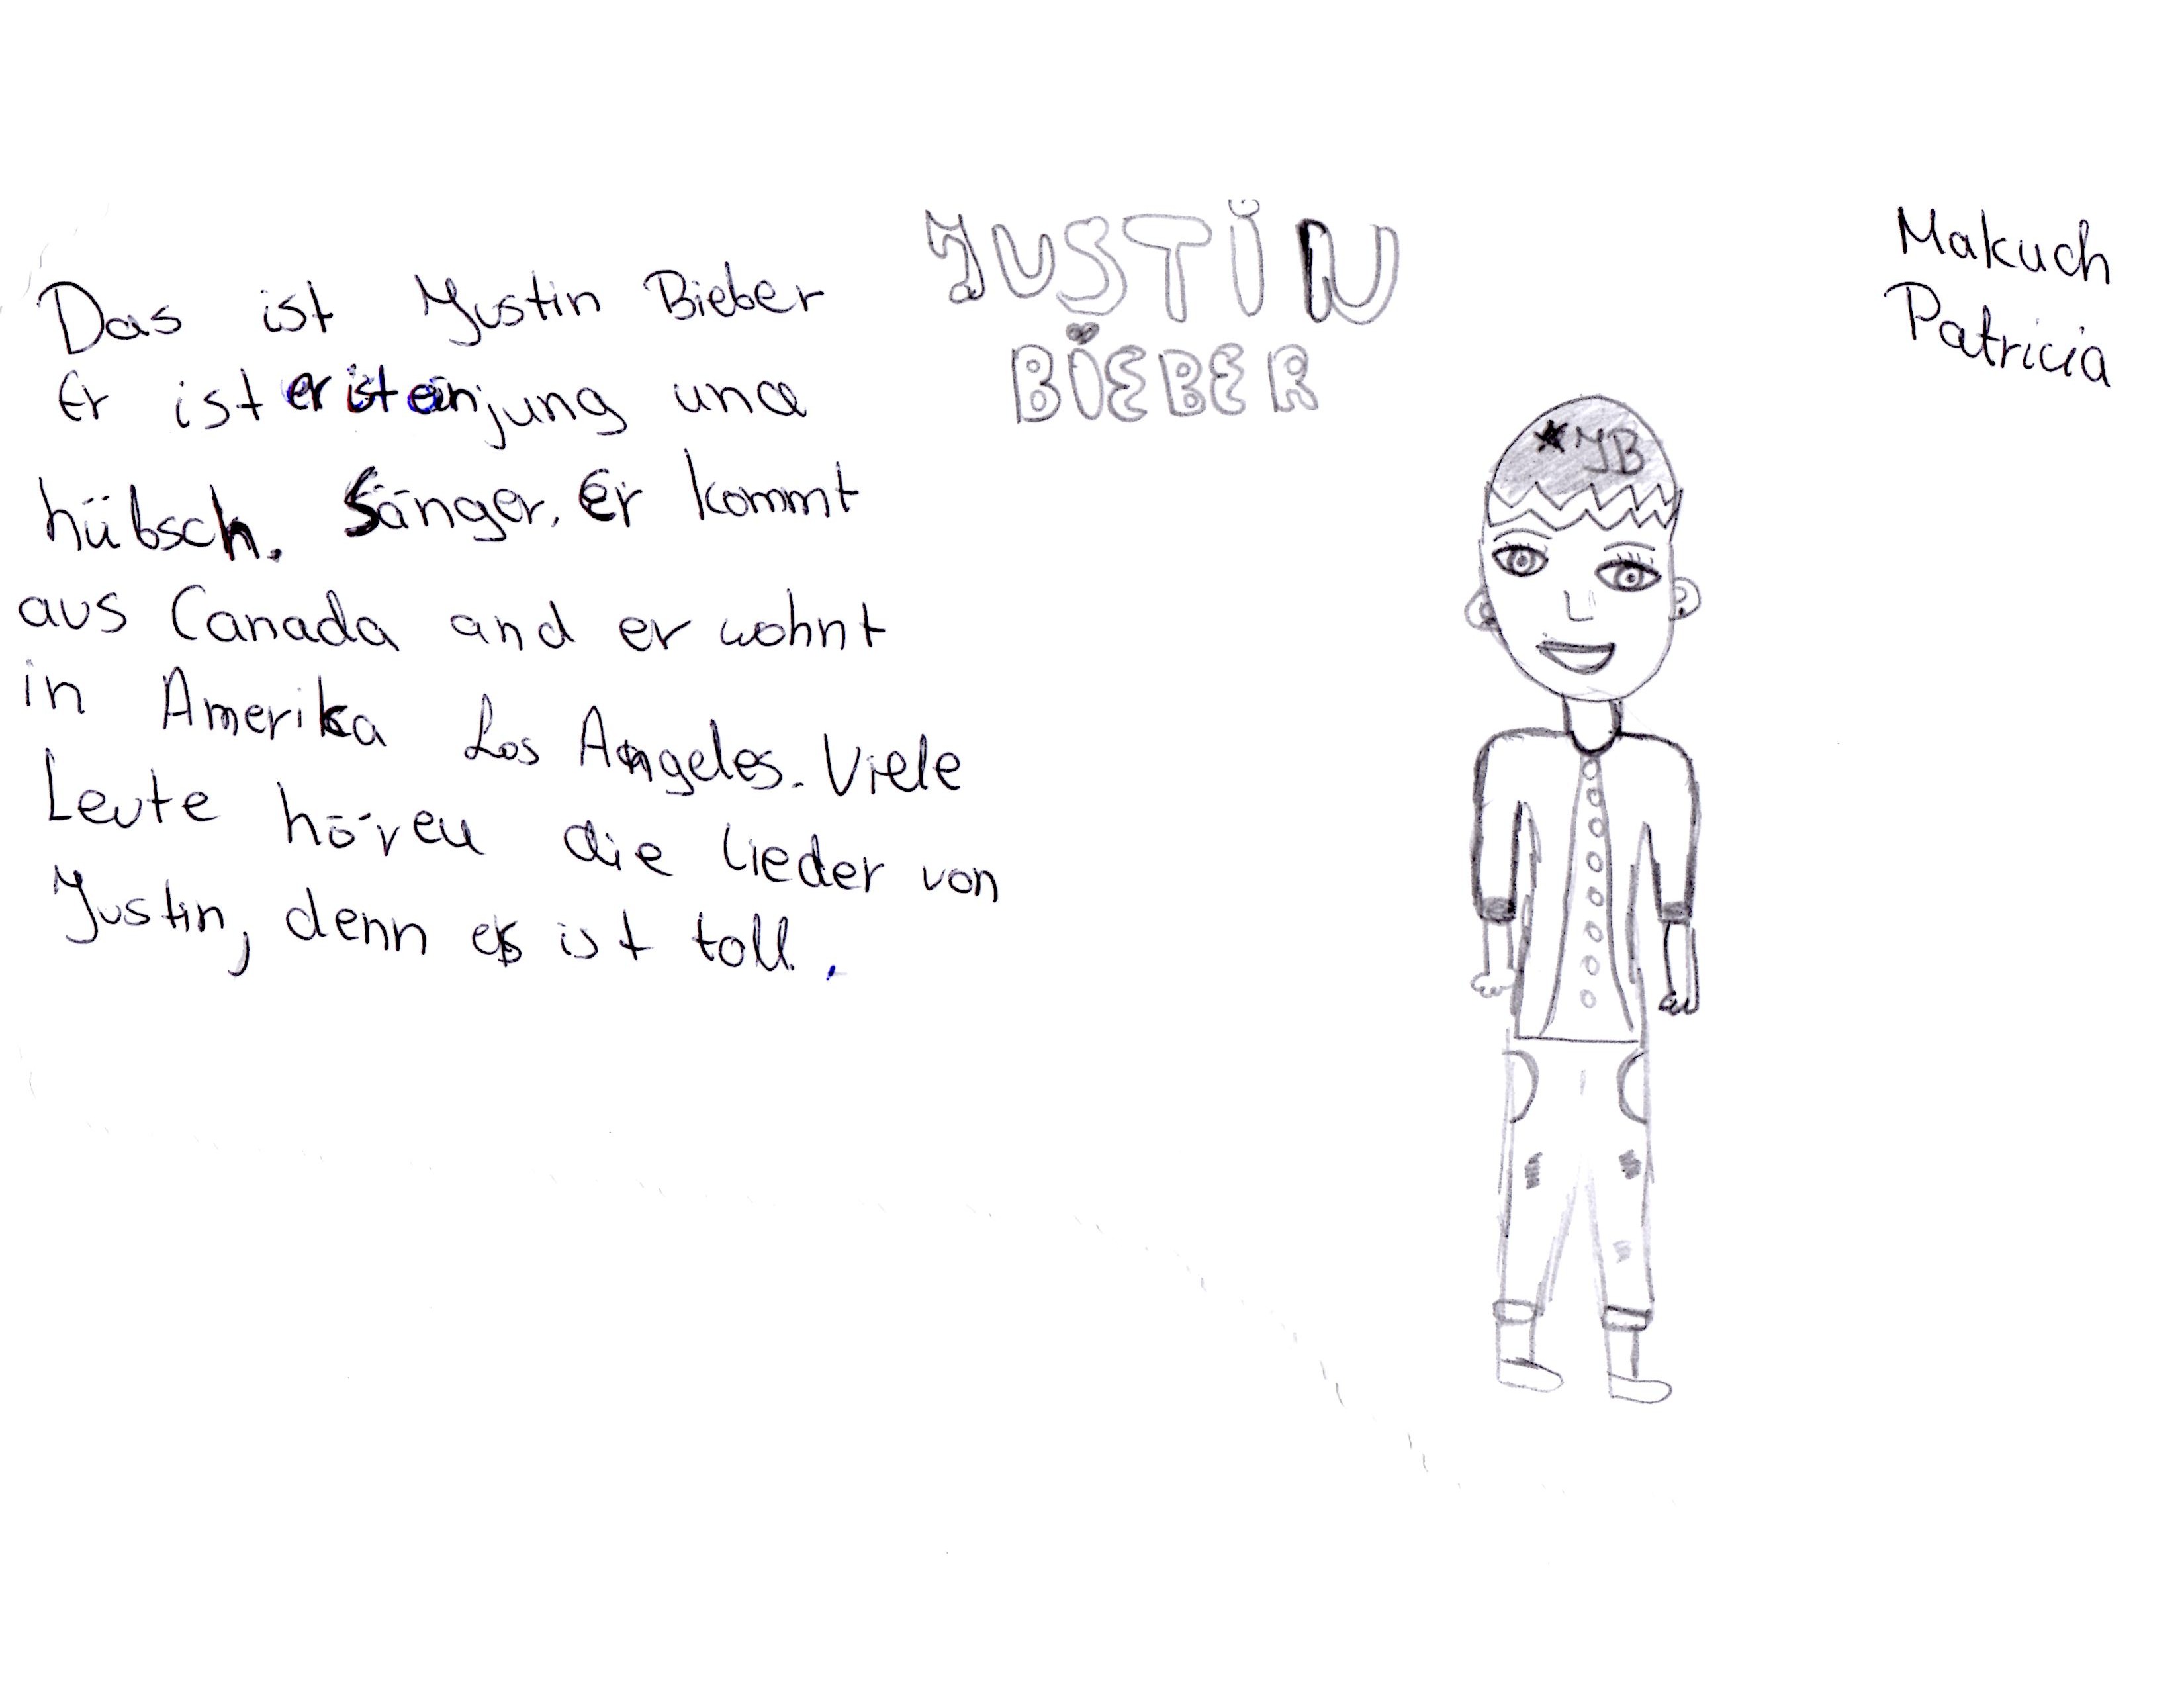 JUSTIN
BIEBER
Makuch
Patricia
Das ist Justin Bieber
Er ist er ist ein jung und
hübsch. Sänger. Er kommt
aus Canada and er wohnt
in Amerika Los Angeles. Viele
Leute hören die Lieder von
Justin, denn es ist toll.
JB